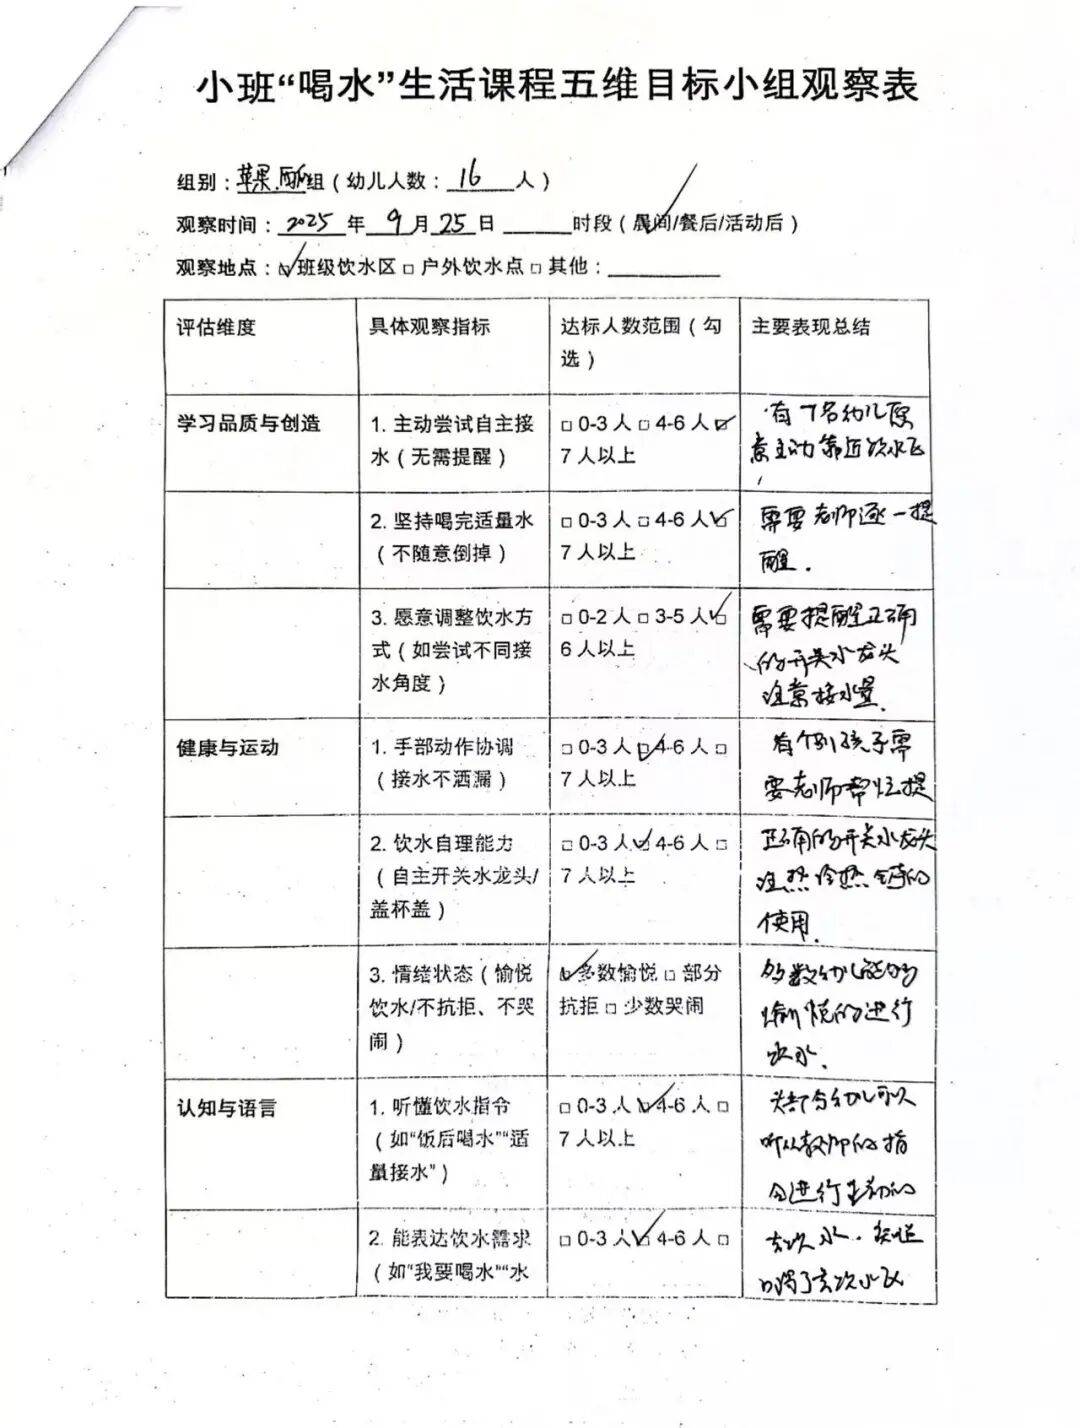 小班“喝水”生活课程五维目标小组观察表
组别：苹果 组（幼儿人数：16人）
观察时间：2025年9月25日______时段（晨间/餐后/活动后）
观察地点：☑班级饮水区□户外饮水点□其他：______
评估维度
具体观察指标
达标人数范围（勾
选）
主要表现总结
学习品质与创造
1. 主动尝试自主接
水（无需提醒）
□ 0-3 人 □ 4-6 人 ☑
7 人以上
有7名幼儿愿
意主动靠近饮水区
2. 坚持喝完适量水
（不随意倒掉）
□ 0-3 人 □ 4-6 人 ☑
7 人以上
需要老师逐一提
醒.
3. 愿意调整饮水方
式（如尝试不同接
水角度）
□ 0-2 人 □ 3-5 人 ☑
6 人以上
需要提醒正确
的开关水龙头
注意接水量.
健康与运动
1. 手部动作协调
（接水不洒漏）
□ 0-3 人 ☑ 4-6 人 □
7 人以上
有个别孩子需
要老师帮忙提
2. 饮水自理能力
（自主开关水龙头/
盖杯盖）
□ 0-3 人 ☑ 4-6 人 □
7 人以上
正确的开关水龙头
冷热 的
使用.
3. 情绪状态（愉悦
饮水/不抗拒、不哭
闹）
☑ 多数愉悦 □ 部分
抗拒 □ 少数哭闹
多数幼儿能够
愉悦的进行
饮水.
认知与语言
1. 听懂饮水指令
（如“饭后喝水”“适
量接水”）
□ 0-3 人 ☑ 4-6 人 □
7 人以上
大部分幼儿可以
听从教师的指
令进行主动的
2. 能表达饮水需求
（如“我要喝水”“水
□ 0-3 人 ☑ 4-6 人 □
去饮水.
口渴了去饮水区